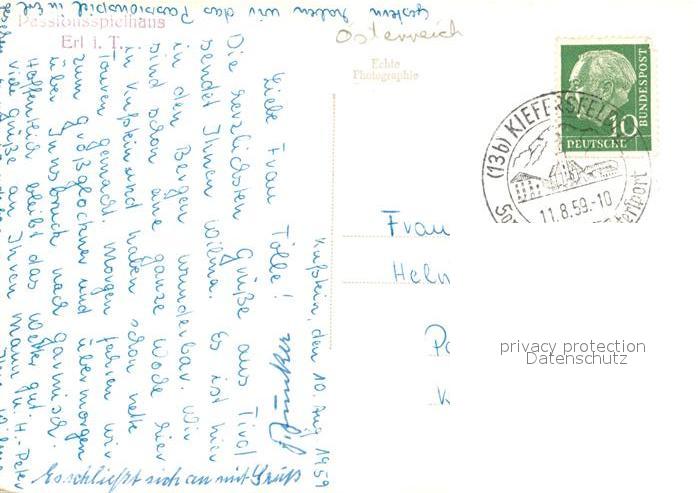 Gestern haben wir das Passionsspiel in Erl
Passionsspielhaus
Erl i. T.
Österreich
Echte
Photographie
Kufstein, den 10. Aug. 1959
Liebe Frau Tölle!
Die herzlichsten Grüße aus Tirol
sendet Ihnen Wilma. Es ist hier
in den Bergen wunderbar. Wir
sind schon eine ganze Woche hier
in Kufstein und haben schon nette
Touren gemacht. Morgen fahren wir
zum Großglockner und übermorgen
über Innsbruck nach Garmisch.
Hoffentlich bleibt das Wetter gut.
Viele Grüße an Ihren Mann u. H. Peter
Es schließt sich an mit Gruß
Frau
Heln
(13b) KIEFERSFELD
11.8.59.-10
10
DEUTSCHE
BUNDESPOST
privacy protection
Datenschutz